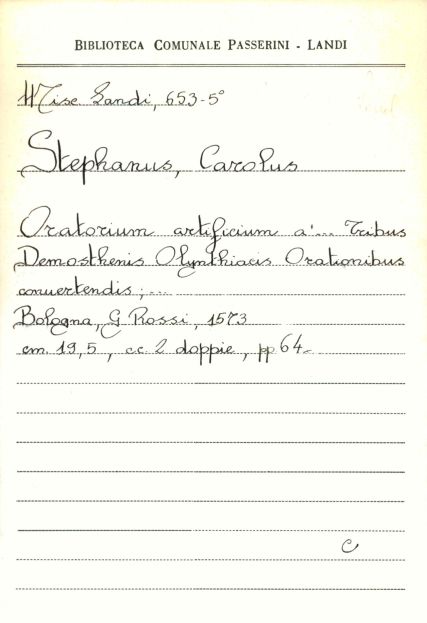 BIBLIOTECA COMUNALE PASSERINI - LANDI
Misc. Landi, 653-5°
Stephanus, Carolus
Oratorium artificium a'... Tribus
Demosthenis Olynthiacis Orationibus
convertendis;...
Bologna, G. Rossi, 1573
cm. 19,5, cc. 2 doppie, pp 64-
C